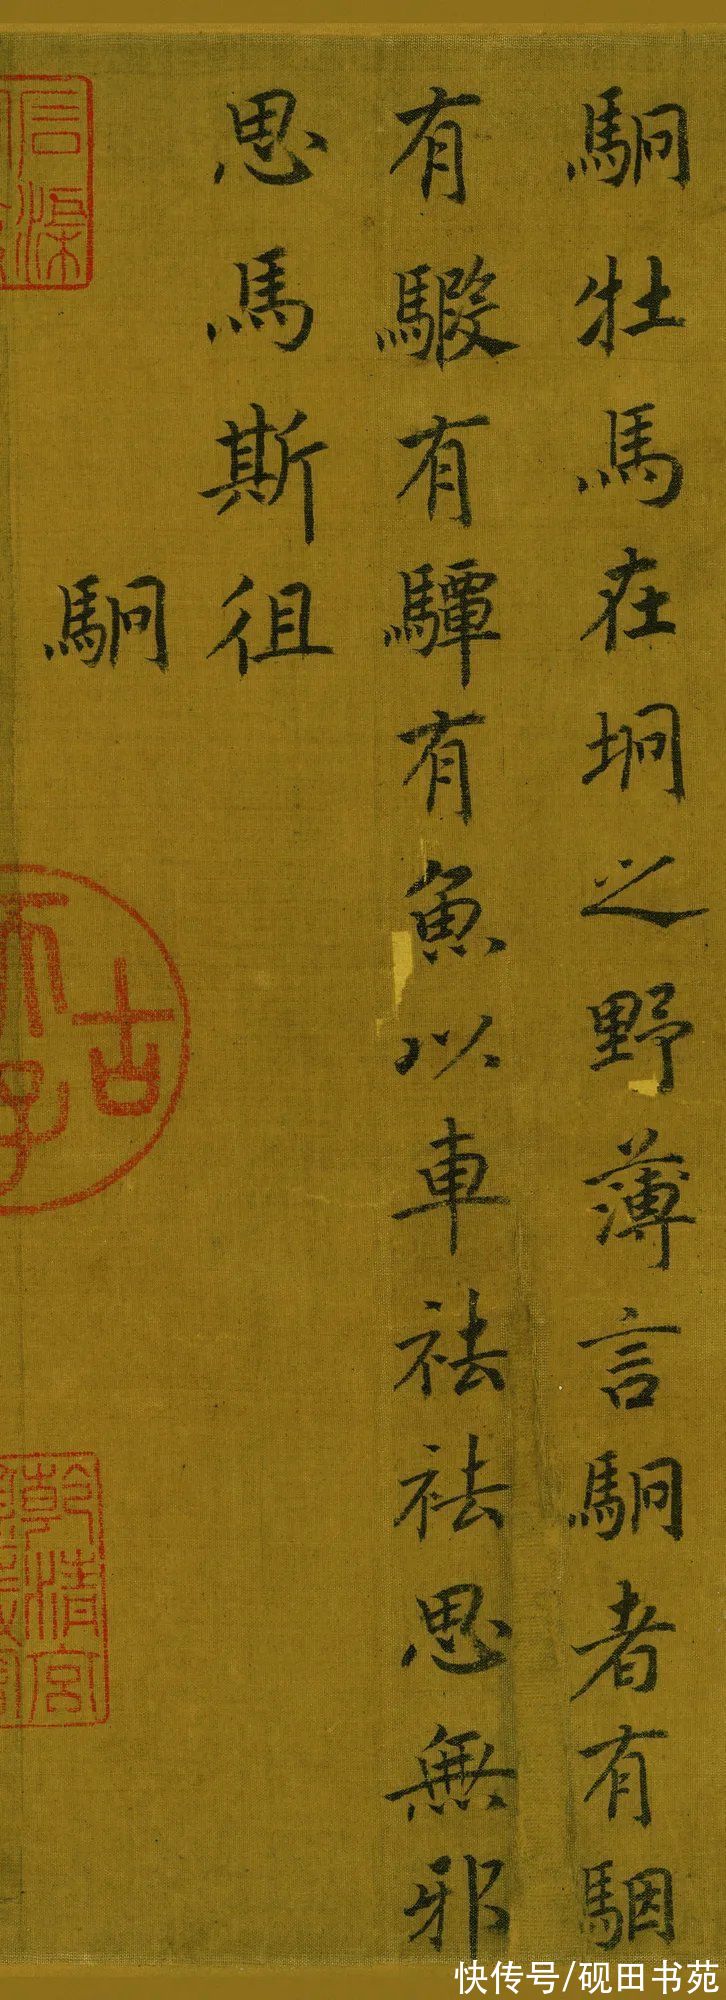 駉牡馬在坰之野薄言駉者有駰
有騢有驔有魚以車祛祛思無邪
思馬斯徂
駉
古
天子
乾清宮
快传号/砚田书苑